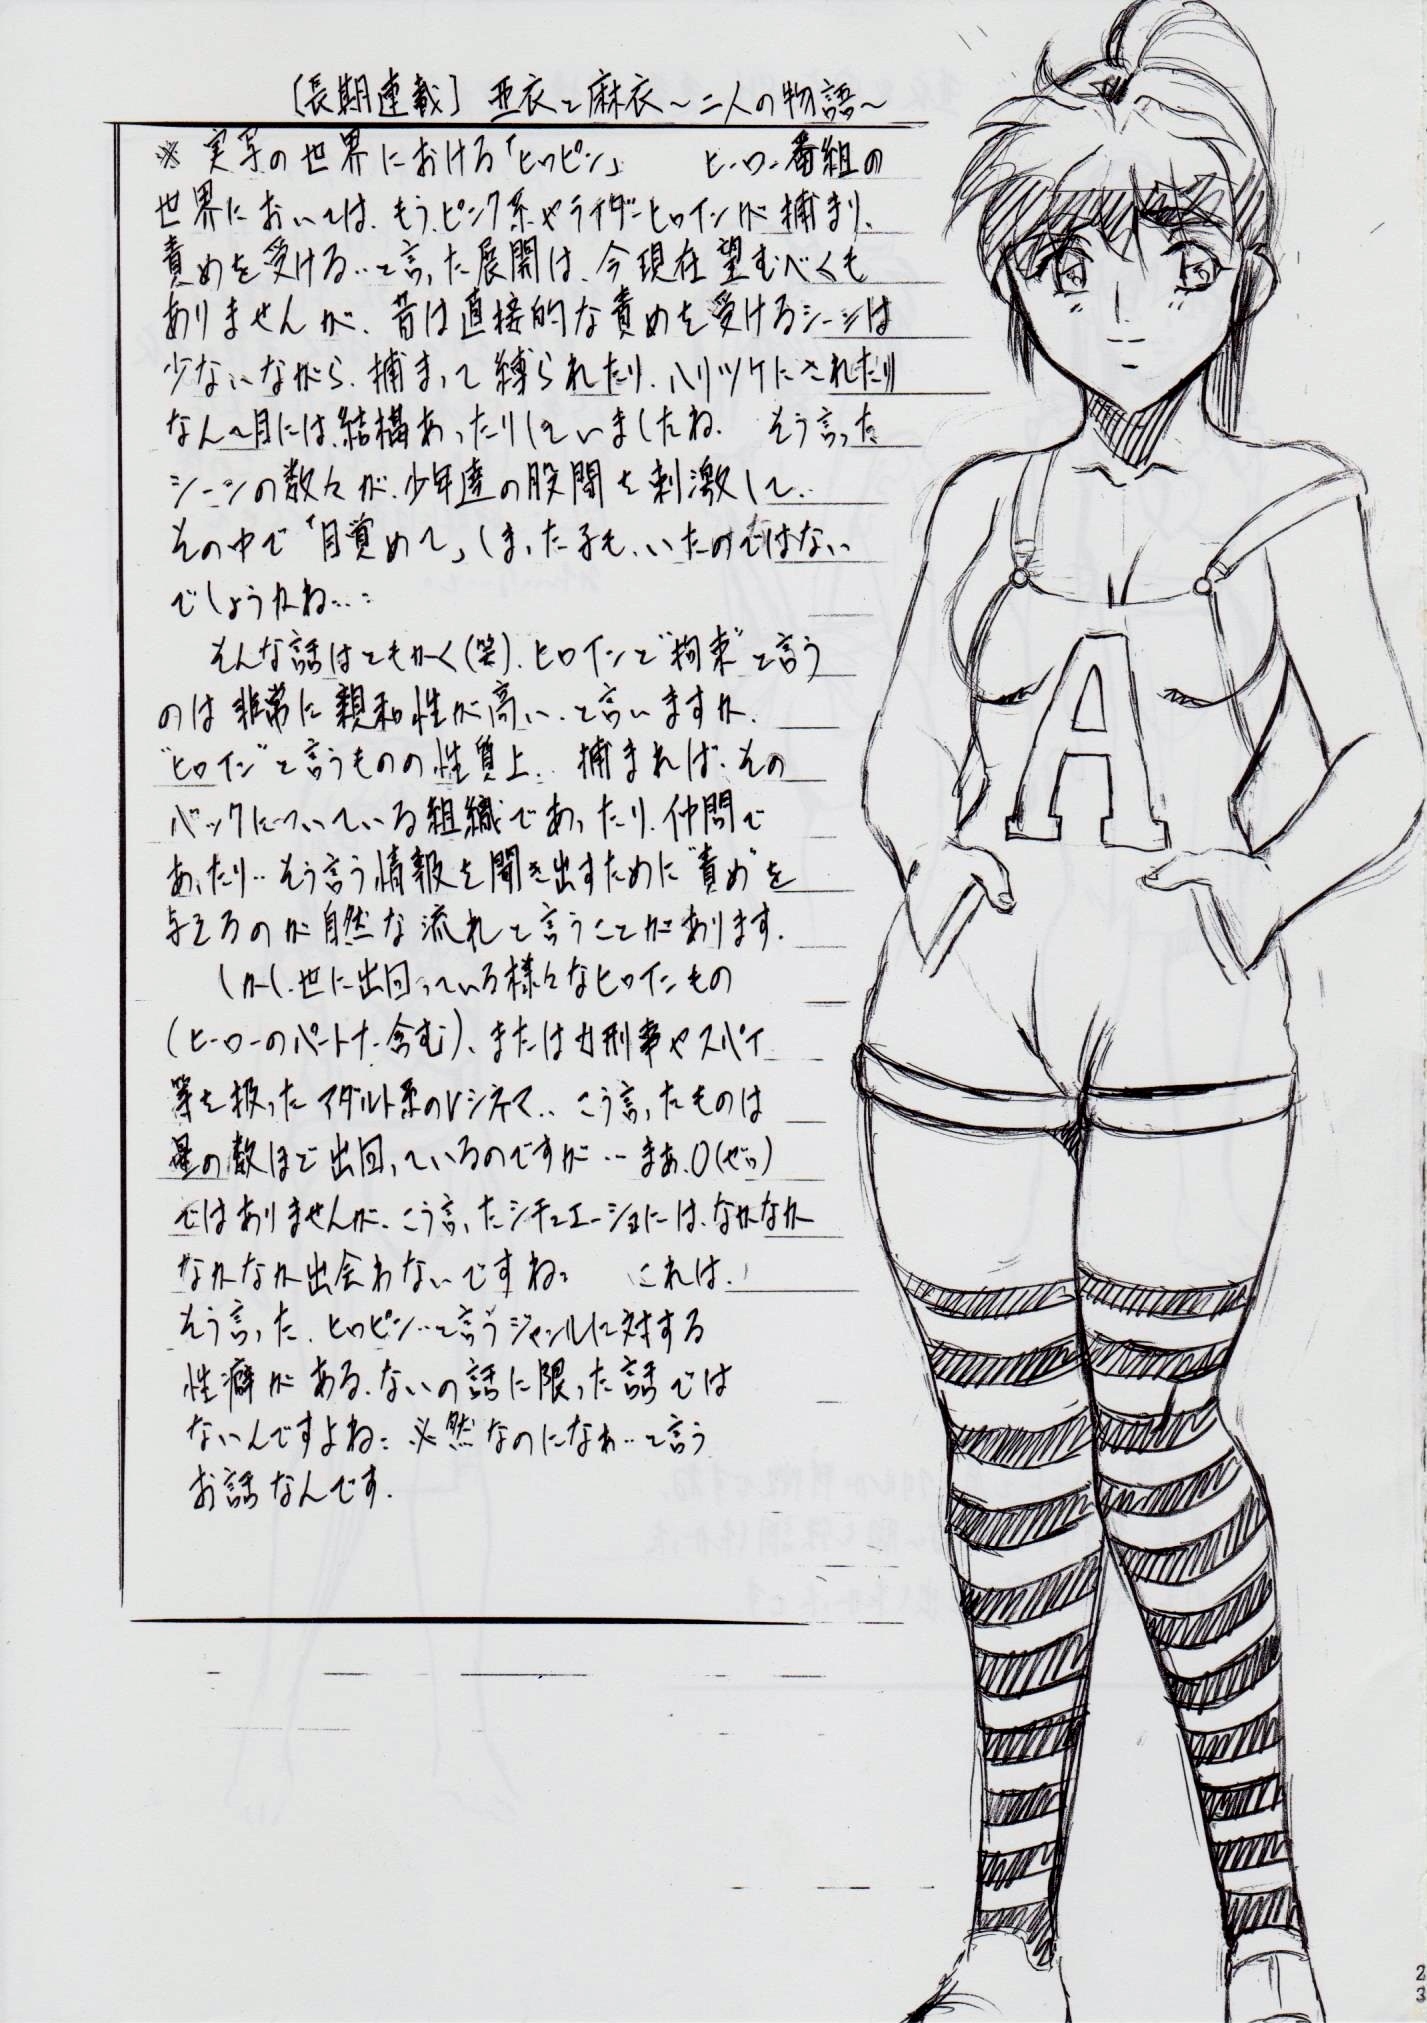 ［長期連載］ 亜衣と麻衣～二人の物語～
※ 実写の世界における「ヒロピン」 ヒーロー番組の
世界においては、もうピンク系やライダーヒロインが捕まり、
責めを受ける‥と言った展開は、今現在望むべくも
ありませんが、昔は直接的な責めを受けるシーンは
少ないながら、捕まって縛られたり、ハリツケにされたり
なんて目には、結構あったりしていましたね、 そう言った
シーンの数々が、少年達の股間を刺激して‥
その中で「目覚めて」しまった子も、いたのではない
でしょうかね‥‥
そんな話はともかく(笑)、ヒロインで“拘束”と言う
のは非常に親和性が高い、と言いますか、
“ヒロイン”と言うものの性質上‥ 捕まれば、その
バックについている組織であったり、仲間で
あったり‥そう言う情報を聞き出すために“責め”を
与えるのが自然な流れと言うことがあります.
しかし、世に出回っている様々なヒロインもの
(ヒーローのパートナー含む)、または女刑事やスパイ
等を扱ったアダルト系のVシネマ‥ こう言ったものは
星の数ほど出回っているのですが‥まぁ、0(ゼロ)
ではありませんが、こう言ったシチュエーションには、なかなか
なかなか出会わないですね‥ これは、
そう言った、ヒロピン‥と言うジャンルに対する
性癖がある、ないの話に限った話では
ないんですよね‥必然なのになぁ‥と言う
お話なんです.
A
23